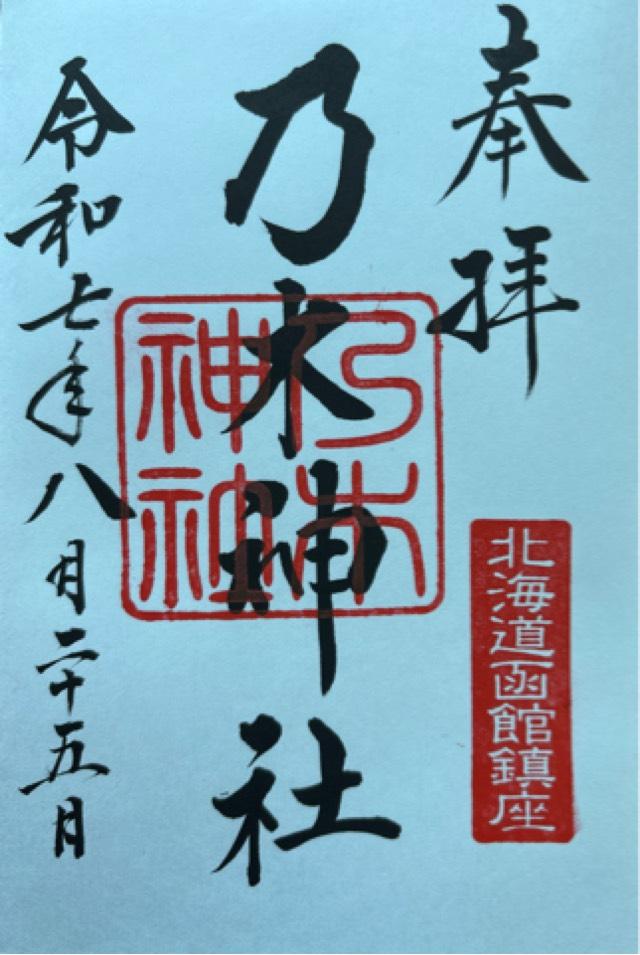 奉拝
北海道函館鎮座
乃木神社
乃木神社
令和七年八月二十五日